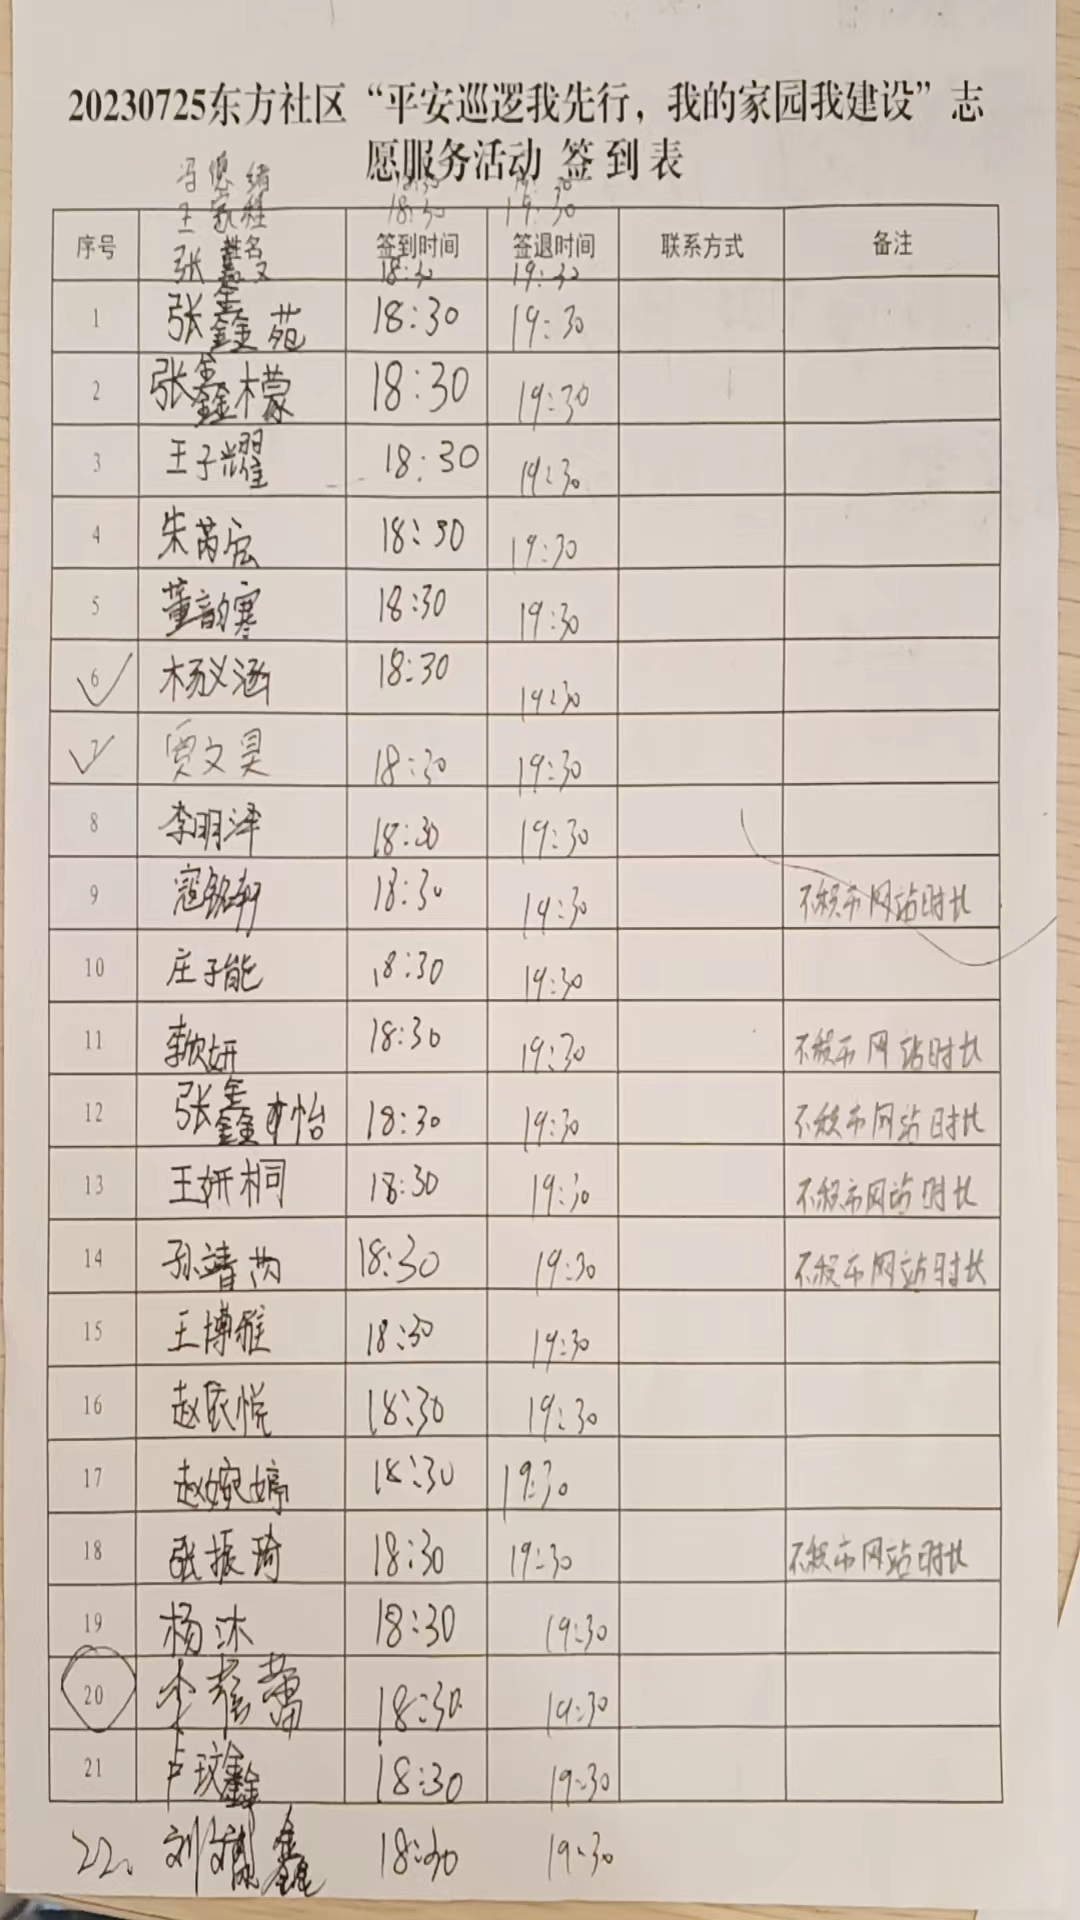 20230725东方社区“平安巡逻我先行，我的家园我建设”志
愿服务活动 签到表
冯 绪 18:30 19:30
王家桂 18:30 19:30
序号 姓名 签到时间 签退时间 联系方式 备注
张鑫文 18:30 19:30
1 张鑫苑 18:30 19:30
2 张鑫檬 18:30 19:30
3 王子耀 18:30 19:30
4 朱芮宏 18:30 19:30
5 董韵寒 18:30 19:30
6 杨义涵 18:30 19:30
7 贾文昊 18:30 19:30
8 李明泽 18:30 19:30
9 寇铭轩 18:30 19:30 不报市网站时长
10 庄子能 18:30 19:30
11 李欣妍 18:30 19:30 不报市网站时长
12 张鑫怡 18:30 19:30 不报市网站时长
13 王妍桐 18:30 19:30 不报市网站时长
14 孙靖 18:30 19:30 不报市网站时长
15 王博雅 18:30 19:30
16 赵依悦 18:30 19:30
17 赵婉婷 18:30 19:30
18 张振琦 18:30 19:30 不报市网站时长
19 杨沐 18:30 19:30
20 李 蕾 18:30 19:30
21 卢玟鑫 18:30 19:30
22、刘 鑫 18:30 19:30